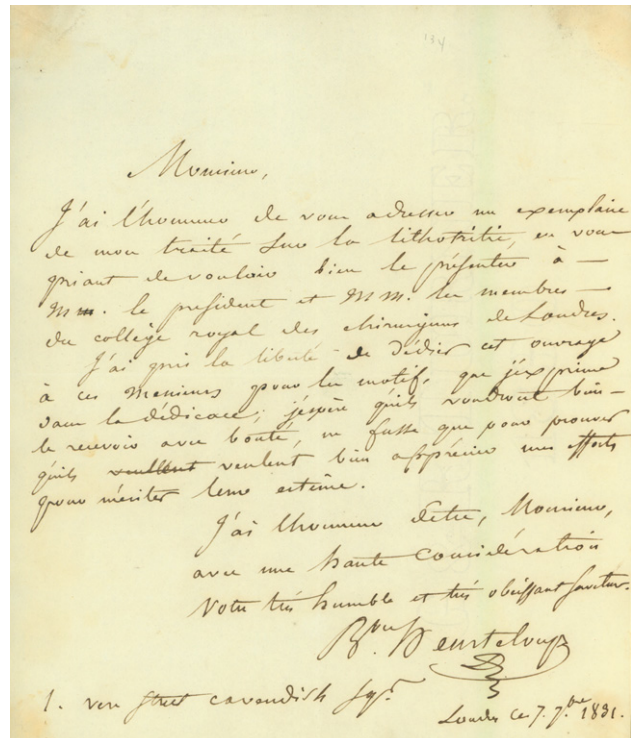 134
Monsieur,
J'ai l'honneur de vous adresser un exemplaire
de mon traité sur la lithotritie, en vous
priant de vouloir bien le présenter à —
Mm. le président et MM. les membres —
du collège royal des chirurgiens de Londres.
J'ai pris la liberté de dédier cet ouvrage
à ces Messieurs pour les motifs que j'exprime
dans la dédicace; j'espère qu'ils voudront bien —
le recevoir avec bonté, ne fusse que pour prouver
qu'ils veullent veulent bien apprécier mes efforts
pour mériter leur estime.
J'ai l'honneur d'être, Monsieur,
avec une haute considération
Votre très humble et très obéissant serviteur.
Bon Heurteloup
1. vere street cavendish sqr.
Londres ce 7. 7.bre 1831.